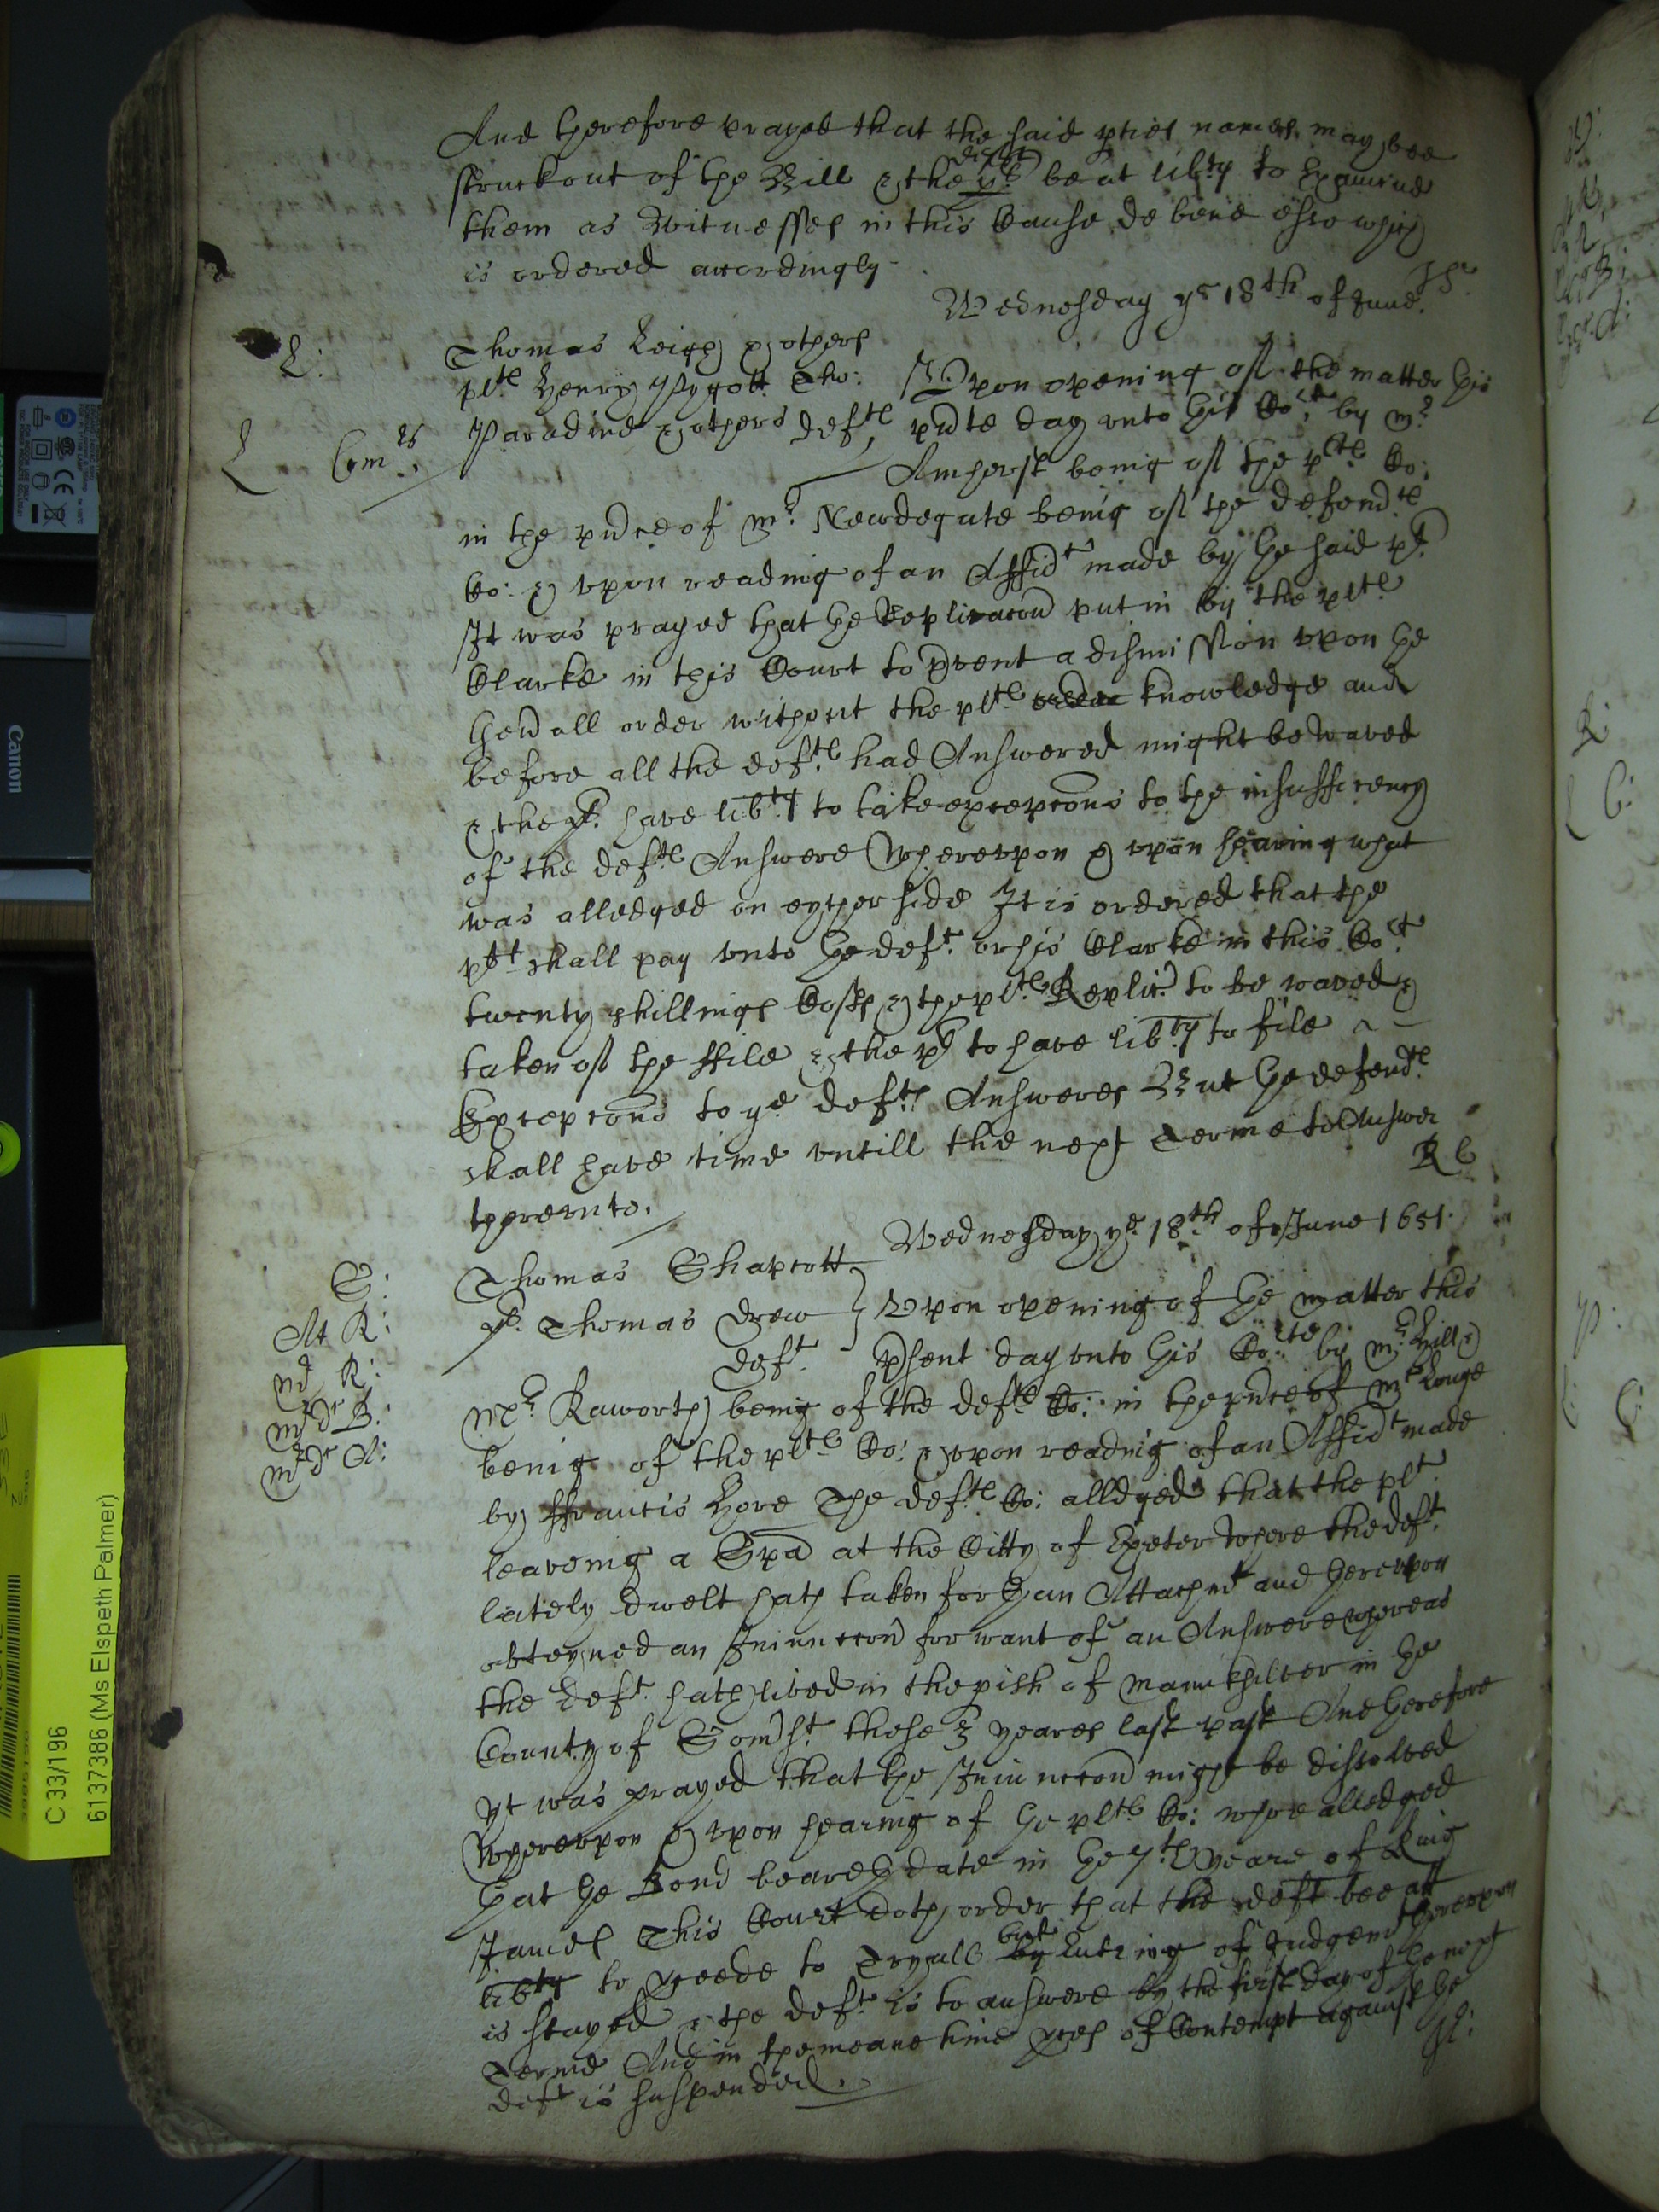 And therefore prayed that the said pties names may bee
struckout of the Bill & the deft be at lib:ty to Examine
them as Witnesses in this Cause de bene esse which
is ordered accordingly
Wednesday ye 18th of June
L:
Thomas Leigh & others
plts Henry Pygott Tho:
Paradine & others defts
Upon opening of the matter this
pnte day unto this Cort by mr
Amherst being of the plts Co:
in the pnce of mr Newdegate being of the defendts
Co: & upon reading of an Affidt made by the said plt
It was prayed that the Replicacon put in by the plts
Clarke in this Court to pvent a dismission upon the
gen'all order without the plts order knowledge and
before all the defts had Answered might be waved
& the plt have lib:ty to take excepcons to the insufficiency
of the defts Answere Whereupon & upon hearing what
was alledged on eyther side It is ordered that the
plt shall pay unto the deft or his Clarke in this Cort
twenty shillings Costs & the plts Replic to be waved &
taken of the ffile & the plt to have lib:ty to file
Excepcons to ye defts Answeres But the defendts
shall have time untill the next Terme to Answer
thereunto.
Wednesday ye 18th of June 1651
S:
Thomas Shapcott
plt Thomas Drew
deft
Upon opening of the matter this
psent day unto this Corte by mr Hill &
mr Raworth being of the defts Co: in the pnce of mr Longe
being of the plts Co: & upon reading of an Affidt made
by ffrancis Hore The defts Co: alledged that the plt
leaveing a Spa at the Citty of Exeter where the deft
lately dwelt hath taken forth an Attachmt and thereupon
obteyned an Iniunccon for want of an Answere whereas
the deft hath lived in the pish of in the
County of Somst these 3 yeares last past And therefore
yt was prayed that the Iniunccon might be dissolved
Whereupon & upon hearing of the plts Co: who alledged
that the Bond beareth date in the 7th yeare of King
James This Court doth order that the deft bee att
lib:ty to pceede to Tryall but Entring of Judgemt thereupon
is stayed & the deft is to answere by the first day of the next
Terme And in the meane time pces of Contempt against the
deft is suspended.
Canon
C 33/196
6137386 (Ms Elspeth Palmer)